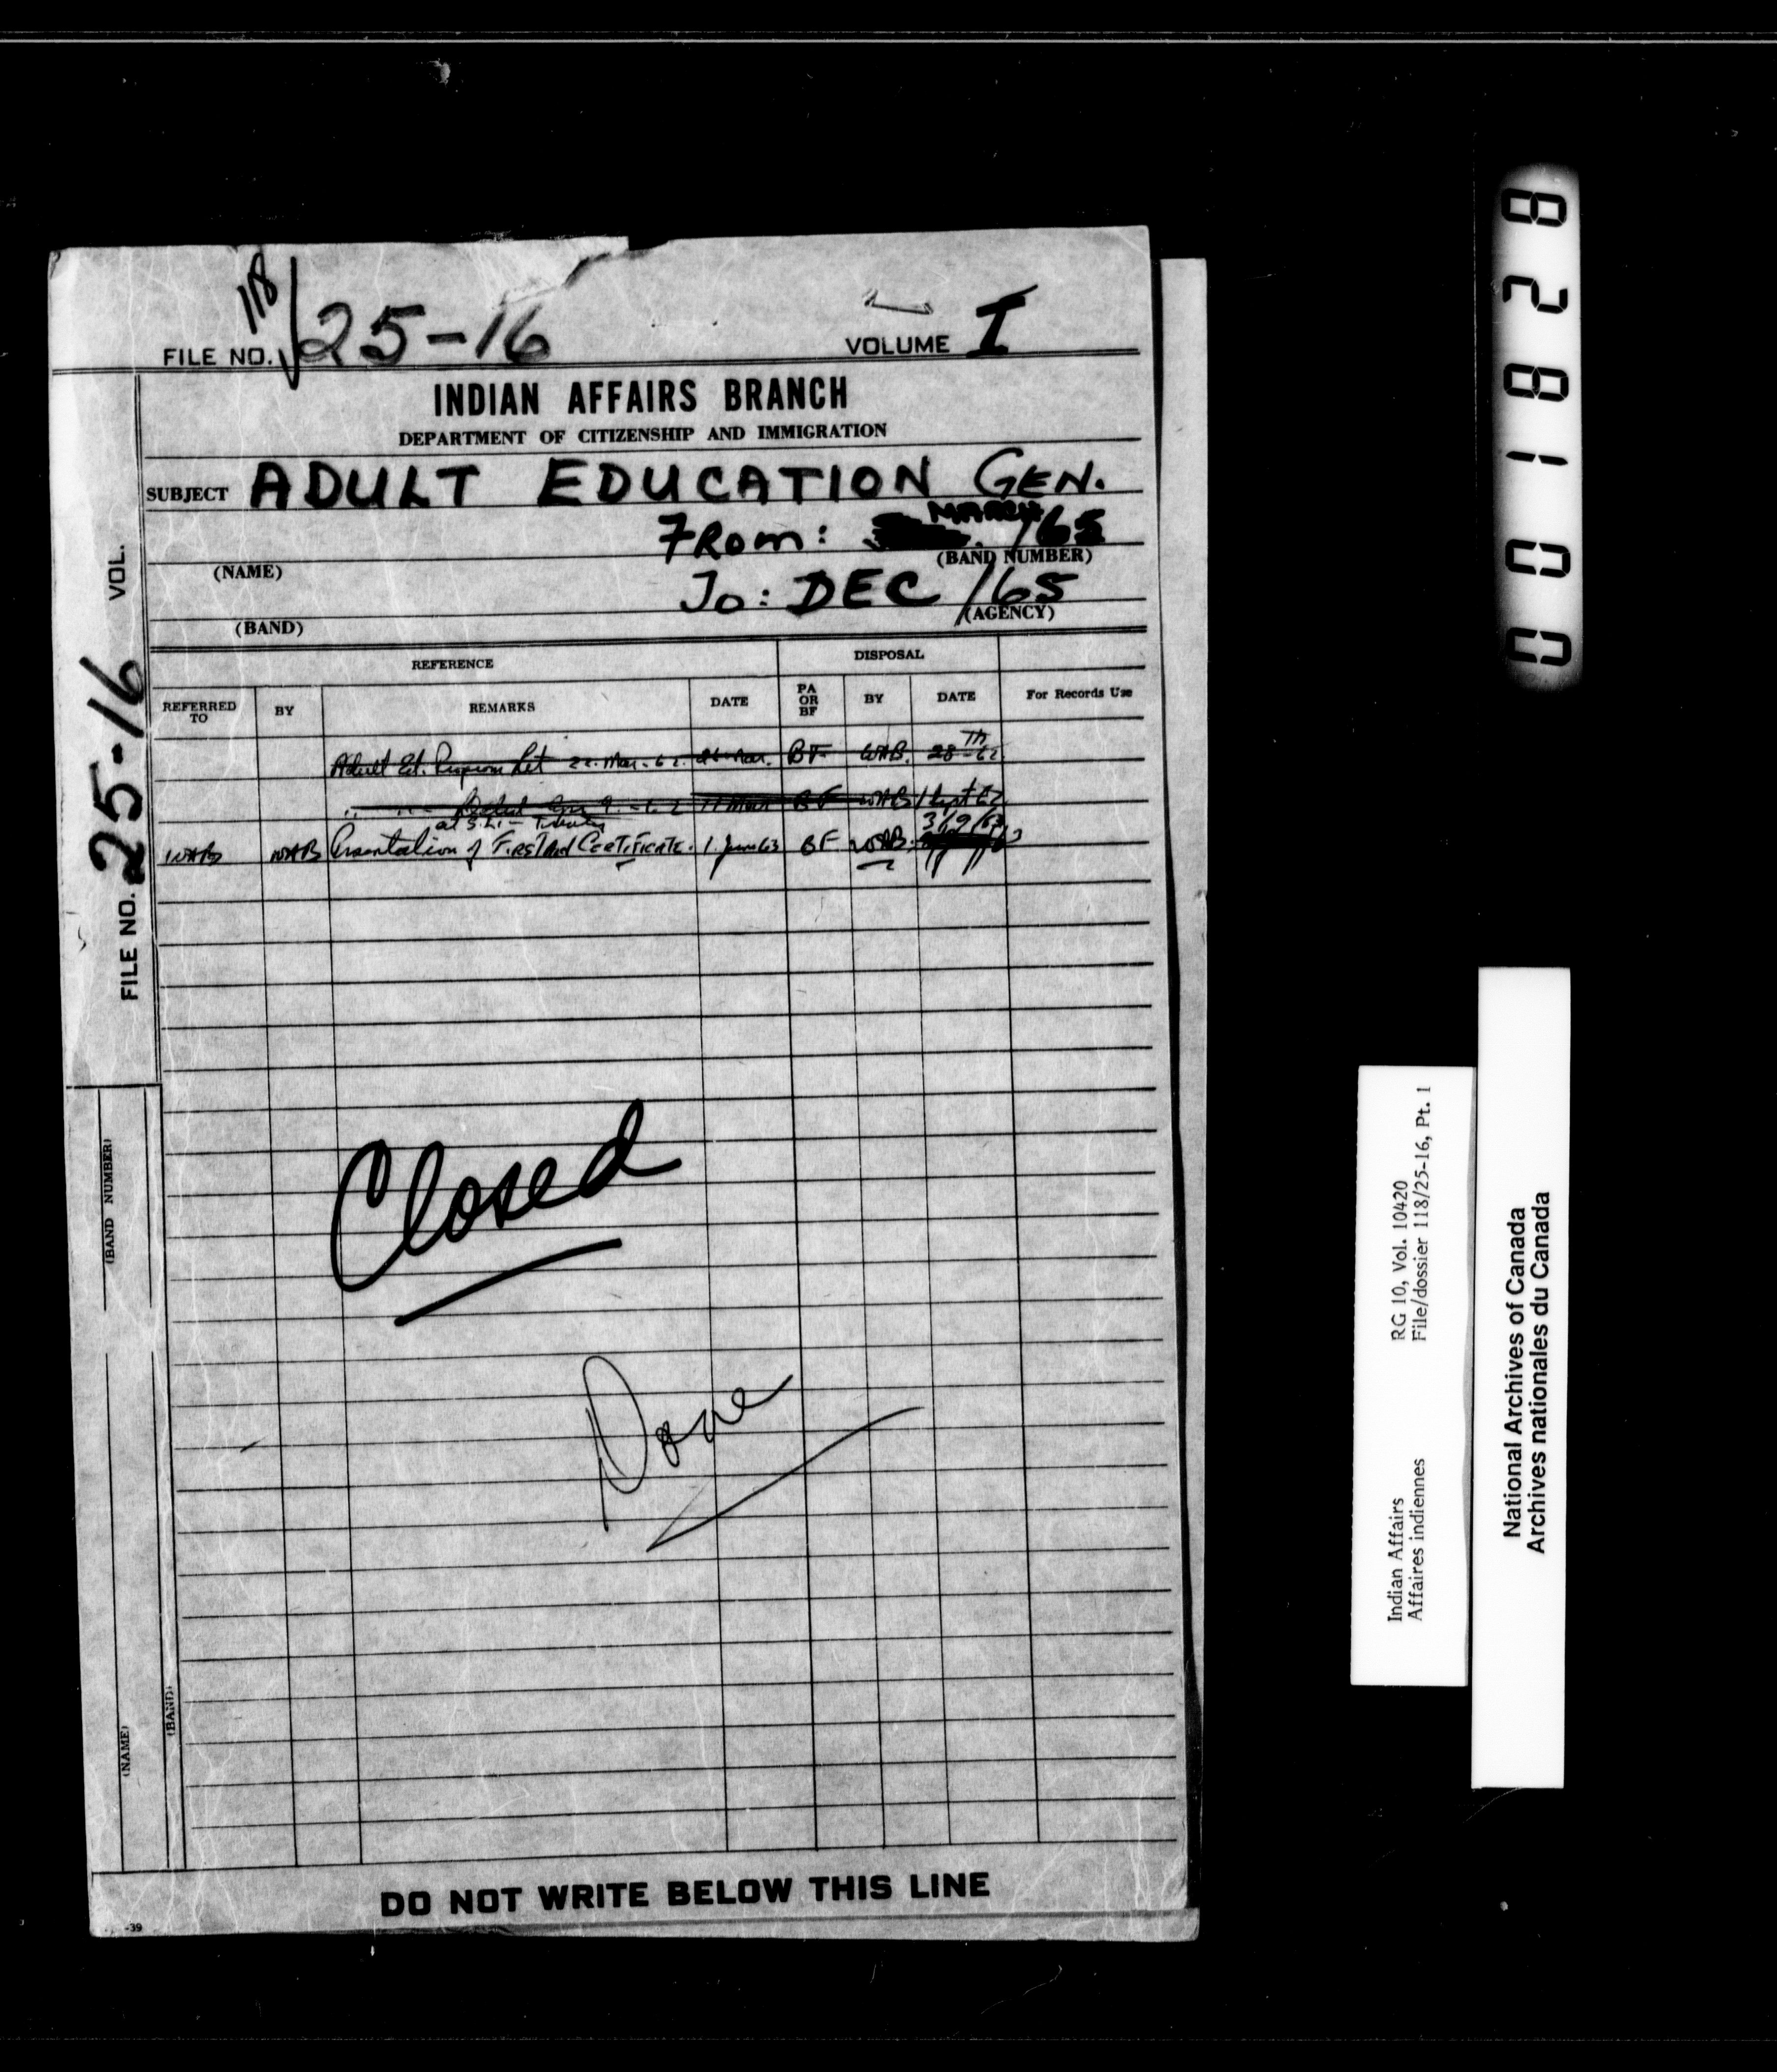 118/25-16
FILE NO.
VOLUME I
INDIAN AFFAIRS BRANCH
DEPARTMENT OF CITIZENSHIP AND IMMIGRATION
SUBJECT ADULT EDUCATION GEN.
FROM: MARCH/65
(NAME) (BAND NUMBER)
To: DEC/65
(BAND) (AGENCY)
REFERENCE DISPOSAL
REFERRED TO BY REMARKS DATE PA OR BF BY DATE For Records Use
Adult Ed. 22. Mar. 62. Mar. BF WAB. 28th-62
BF WAB 1 Sept 62
at S.L. - 3/9/63
WAB WAB Presentation of FIRST AID CERTIFICATE. 1. June 63 BF WAB.
Closed
Done
DO NOT WRITE BELOW THIS LINE
-39
FILE NO. 25-16 VOL.
(BAND NUMBER)
(NAME)
(BAND)
001828
Indian Affairs RG 10, Vol. 10420
Affaires indiennes File/dossier 118/25-16, Pt. 1
National Archives of Canada
Archives nationales du Canada